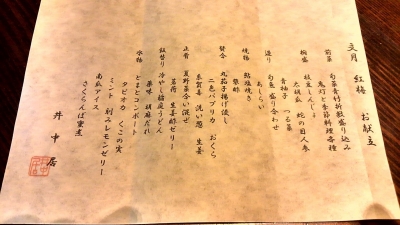 文月 紅梅 お献立
前菜 旬菜青竹折敷盛り込み
鬼灯と季節料理各種
椀盛 枝豆しんじょ
大胡瓜 蛇の目人参
青柚子 つる菜
造り 旬魚 盛り合わせ
あしらい
焼物 鮎塩焼き
蓼酢
賀茂 丸茄子揚げ浸し
二色パプリカ おくら
糸賀喜 洗い葱 生姜
止肴 夏野菜合い混ぜ
茗荷 生姜酢ゼリー
飯替り 冷やし稲庭うどん
薬味 胡麻だれ
水物 とまとコンポート
タピオカ くこの実
ミント 刻みレモンゼリー
南瓜アイス
さくらんぼ蜜煮
井中居